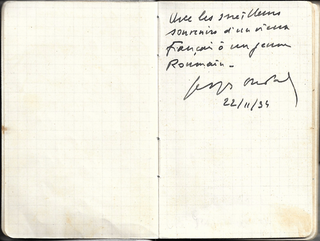 Avec les meilleurs
souvenirs d'un vieux
Français à un jeune
Roumain.
22/11/94